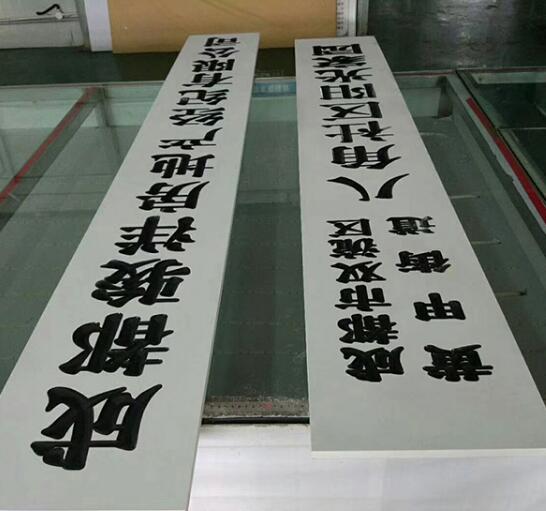 成都骏祥房地产经纪有限公司
成都市双流区
黄甲街道
八角社区阳光家园